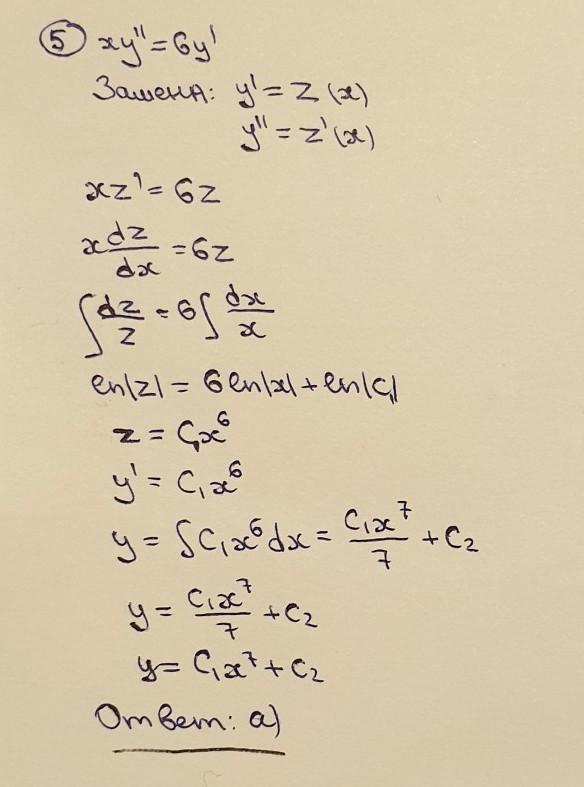 ⑤ xy'' = 6y'
Замена: y' = z(x)
y'' = z'(x)
xz' = 6z
x dz/dx = 6z
∫ dz/z = 6 ∫ dx/x
ln|z| = 6 ln|x| + ln|C₁|
z = C₁x⁶
y' = C₁x⁶
y = ∫ C₁x⁶dx = C₁x⁷/7 + C₂
y = C₁x⁷/7 + C₂
y = C₁x⁷ + C₂
Ответ: а)